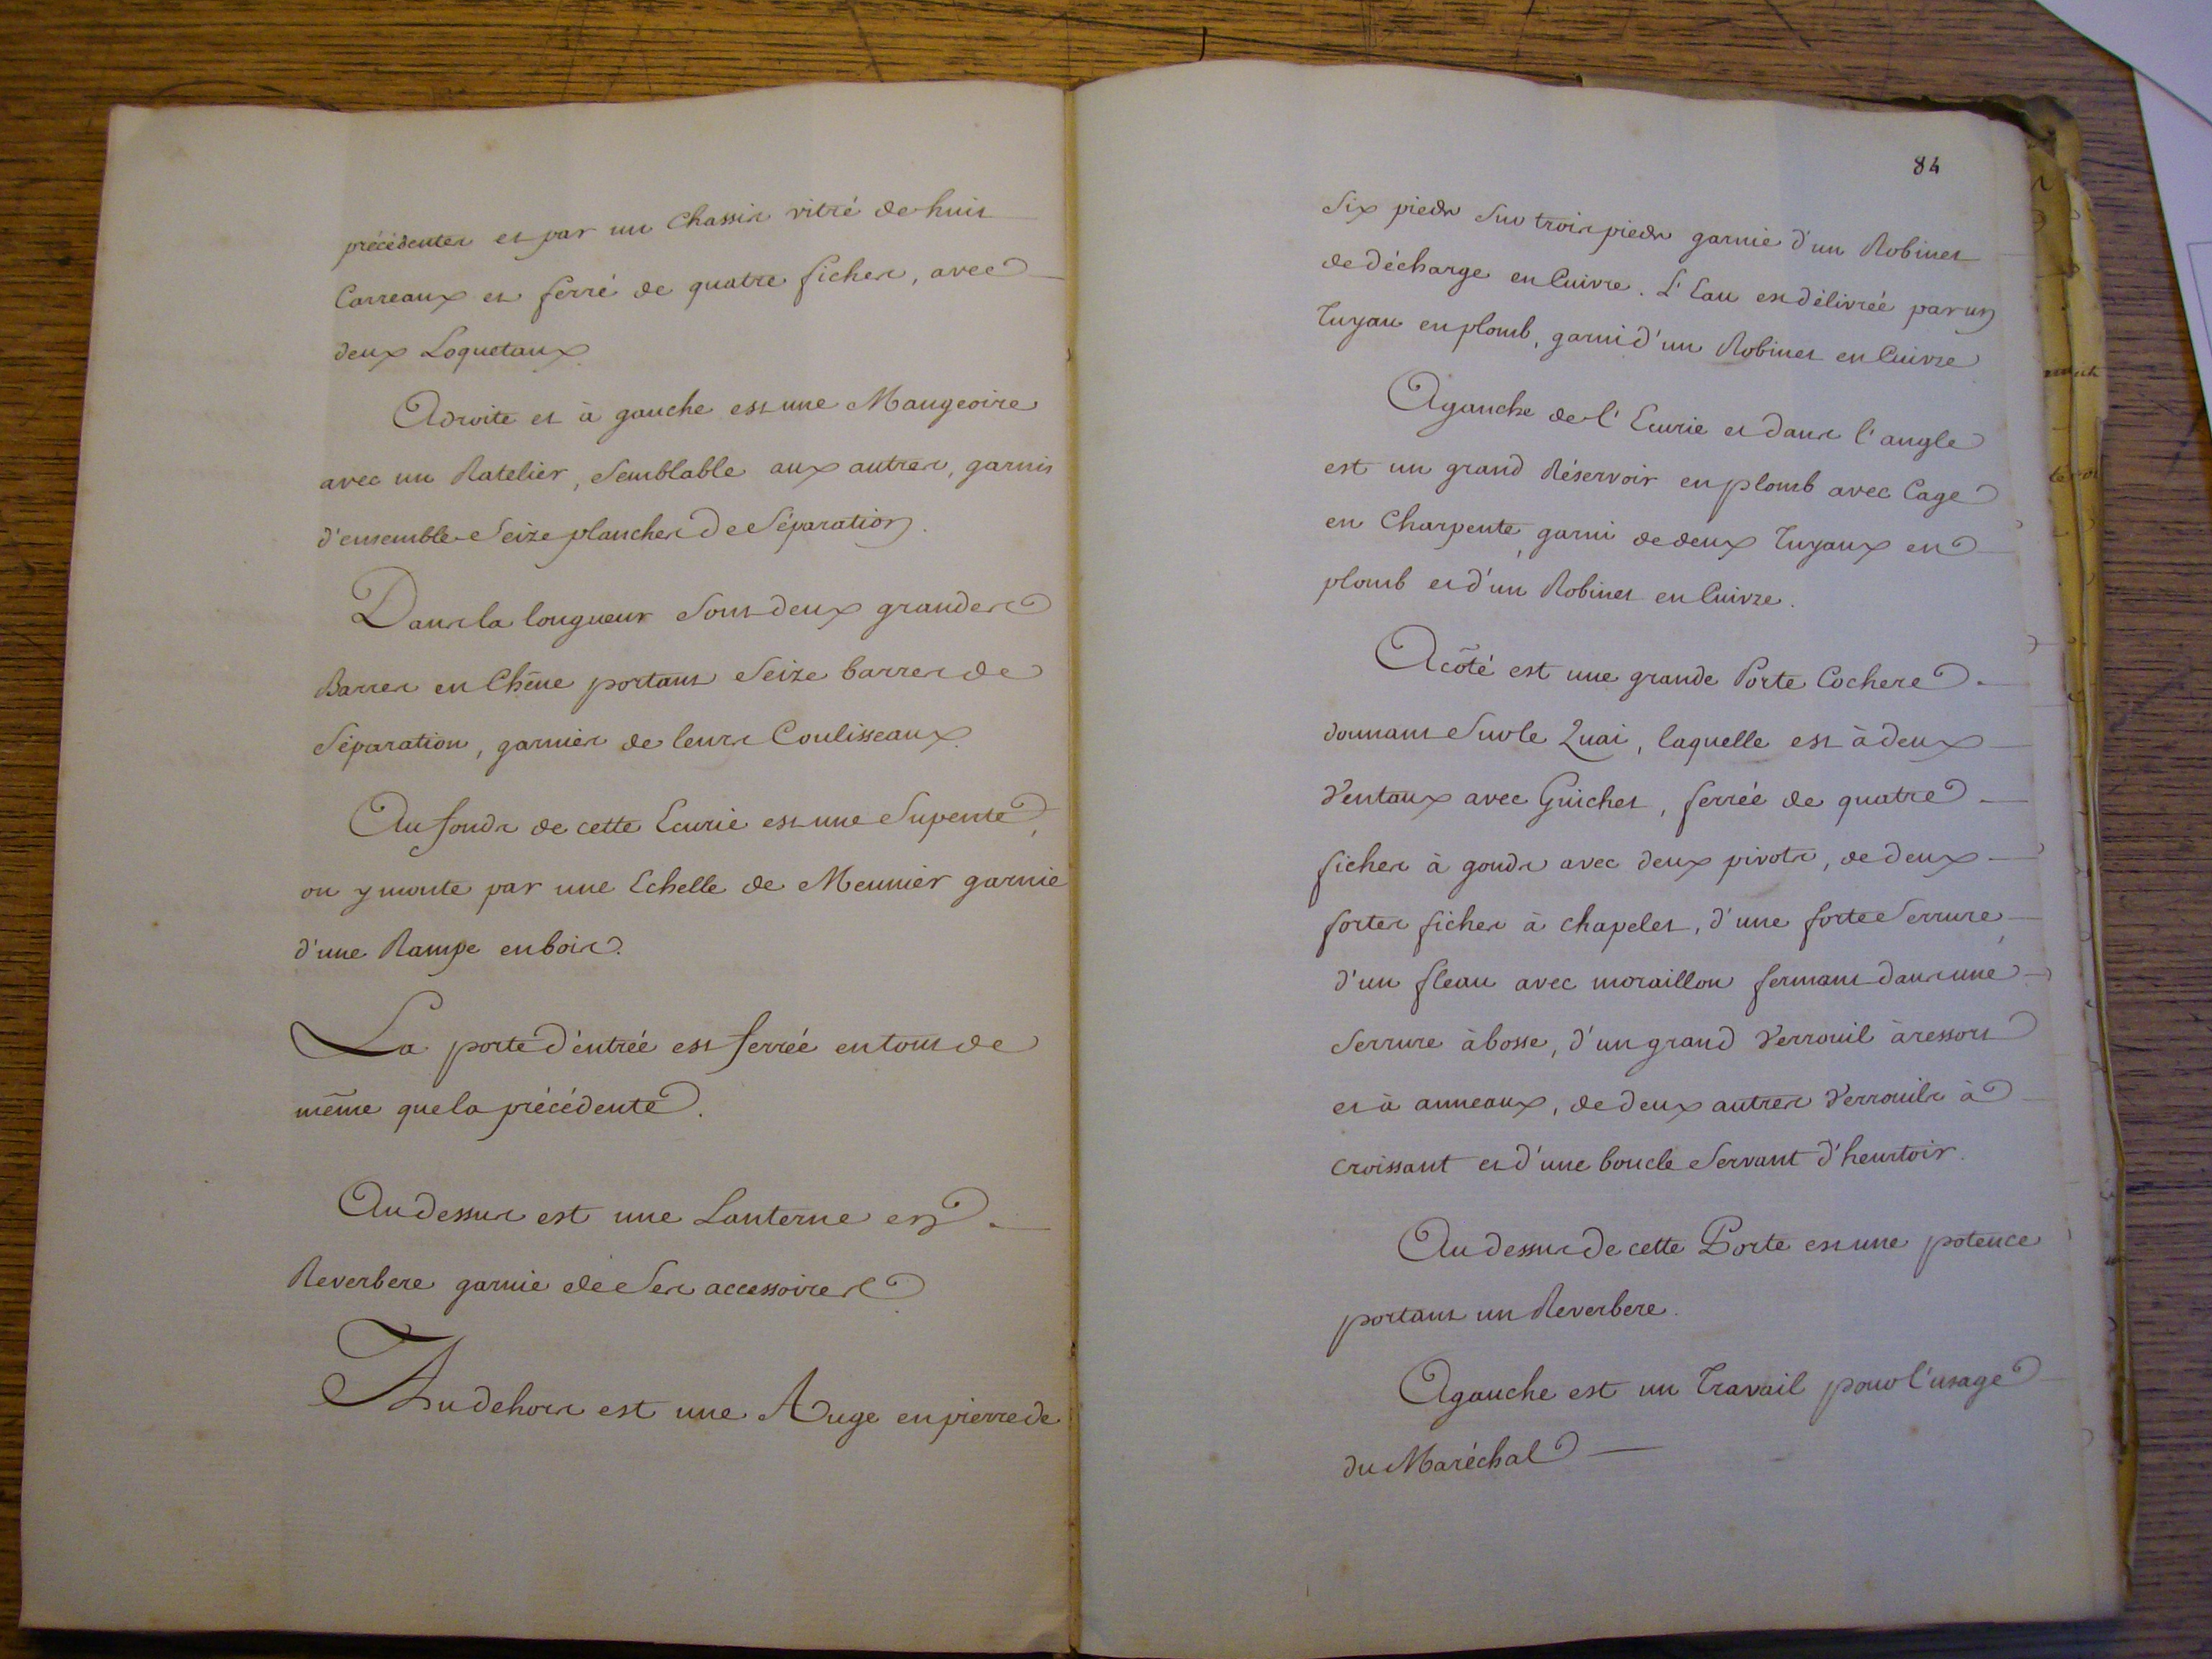 précédentes et par un Chassis vitré de huit
Carreaux et ferré de quatre fiches, avec
deux Loquetaux.
A droite et à gauche est une Mangeoire
avec un Ratelier, Semblable aux autres, garnis
d'ensemble Seize planches de Séparation.
Dans la longueur Sont deux grandes
Barres en Chêne portant Seize barres de
Séparation, garnies de leurs Coulisseaux.
Au fonds de cette Ecurie est une Supente,
on y monte par une Echelle de Meunier garnie
d'une Rampe en bois.
La porte d'entrée est ferrée en tout de
même que la précédente.
Au dessus est une Lanterne en
Reverbere garnie de Ses accessoires
Au dehors est une Auge en pierre de
84
Six pieds Sur trois pieds garnie d'un Robinet
de décharge en Cuivre. L'Eau est délivrée par un
Tuyau en plomb, garni d'un Robinet en Cuivre
A gauche de l'Ecurie et dans l'angle
est un grand Réservoir en plomb avec Cage
en Charpente, garni de deux Tuyaux en
plomb et d'un Robinet en Cuivre.
A côté est une grande Porte Cochere
donnant Sur le Quai, laquelle est à deux
Ventaux avec Guichet, ferrée de quatre
fiches à gonds avec deux pivots, de deux
fortes fiches à chapelet, d'une forte Serrure,
d'un fleau avec moraillon fermant dans une
Serrure à bosse, d'un grand Verrouil à ressort
et à anneaux, de deux autres Verrouils à
croissant et d'une boucle Servant d'heurtoir.
Au dessus de cette Porte est une potence
portant un Reverbere.
A gauche est un Travail pour l'usage
du Maréchal